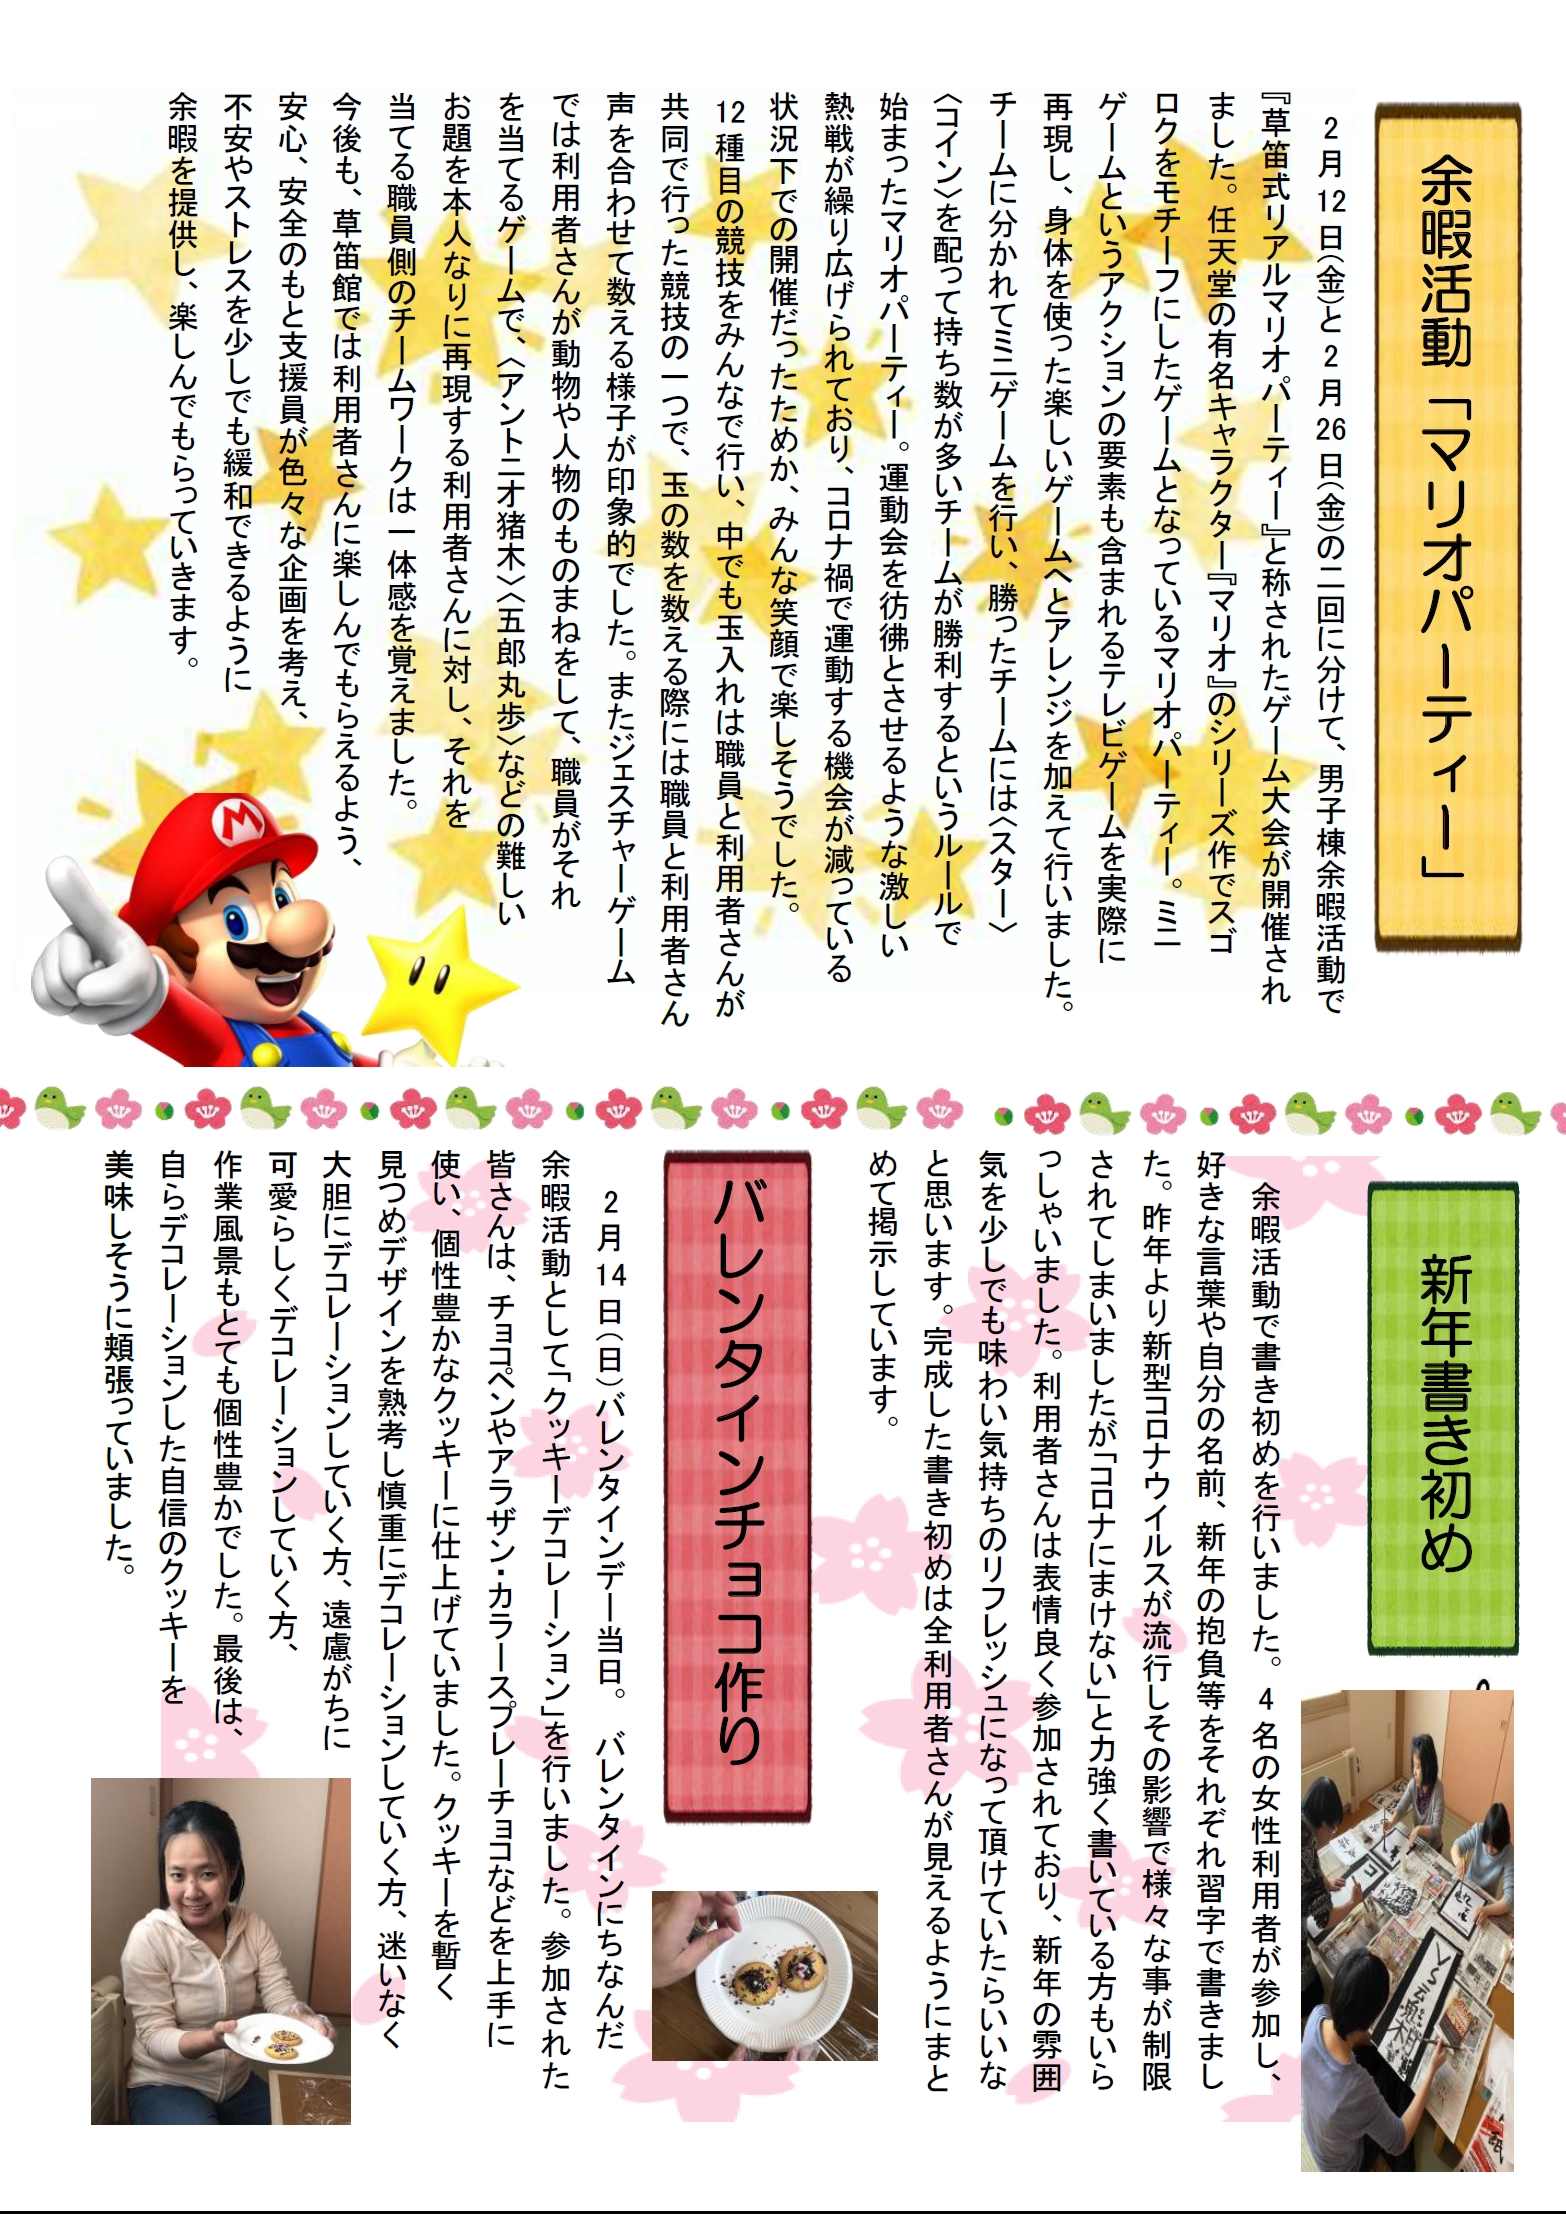 余暇活動「マリオパーティー」
2月12日(金)と2月26日(金)の二回に分けて、男子棟余暇活動で
『草笛式リアルマリオパーティー』と称されたゲーム大会が開催され
ました。任天堂の有名キャラクター『マリオ』のシリーズ作でスゴ
ロクをモチーフにしたゲームとなっているマリオパーティー。ミニ
ゲームというアクションの要素も含まれるテレビゲームを実際に
再現し、身体を使った楽しいゲームへとアレンジを加えて行いました。
チームに分かれてミニゲームを行い、勝ったチームには〈スター〉
〈コイン〉を配って持ち数が多いチームが勝利するというルールで
始まったマリオパーティー。運動会を彷彿とさせるような激しい
熱戦が繰り広げられており、コロナ禍で運動する機会が減っている
状況下での開催だったためか、みんな笑顔で楽しそうでした。
12種目の競技をみんなで行い、中でも玉入れは職員と利用者さんが
共同で行った競技の一つで、玉の数を数える際には職員と利用者さん
声を合わせて数える様子が印象的でした。またジェスチャーゲーム
では利用者さんが動物や人物のものまねをして、職員がそれ
を当てるゲームで、〈アントニオ猪木〉〈五郎丸歩〉などの難しい
お題を本人なりに再現する利用者さんに対し、それを
当てる職員側のチームワークは一体感を覚えました。
今後も、草笛館では利用者さんに楽しんでもらえるよう、
安心、安全のもと支援員が色々な企画を考え、
不安やストレスを少しでも緩和できるように
余暇を提供し、楽しんでもらっていきます。
新年書き初め
余暇活動で書き初めを行いました。4名の女性利用者が参加し、
好きな言葉や自分の名前、新年の抱負等をそれぞれ習字で書きまし
た。昨年より新型コロナウイルスが流行しその影響で様々な事が制限
されてしまいましたが「コロナにまけない」と力強く書いている方もいら
っしゃいました。利用者さんは表情良く参加されており、新年の雰囲
気を少しでも味わい気持ちのリフレッシュになって頂けていたらいいな
と思います。完成した書き初めは全利用者さんが見えるようにまと
めて掲示しています。
バレンタインチョコ作り
2月14日(日)バレンタインデー当日。 バレンタインにちなんだ
余暇活動として「クッキーデコレーション」を行いました。参加された
皆さんは、チョコペンやアラザン・カラースプレーチョコなどを上手に
使い、個性豊かなクッキーに仕上げていました。クッキーを暫く
見つめデザインを熟考し慎重にデコレーションしていく方、迷いなく
大胆にデコレーションしていく方、遠慮がちに
可愛らしくデコレーションしていく方、
作業風景もとても個性豊かでした。最後は、
自らデコレーションした自信のクッキーを
美味しそうに頬張っていました。